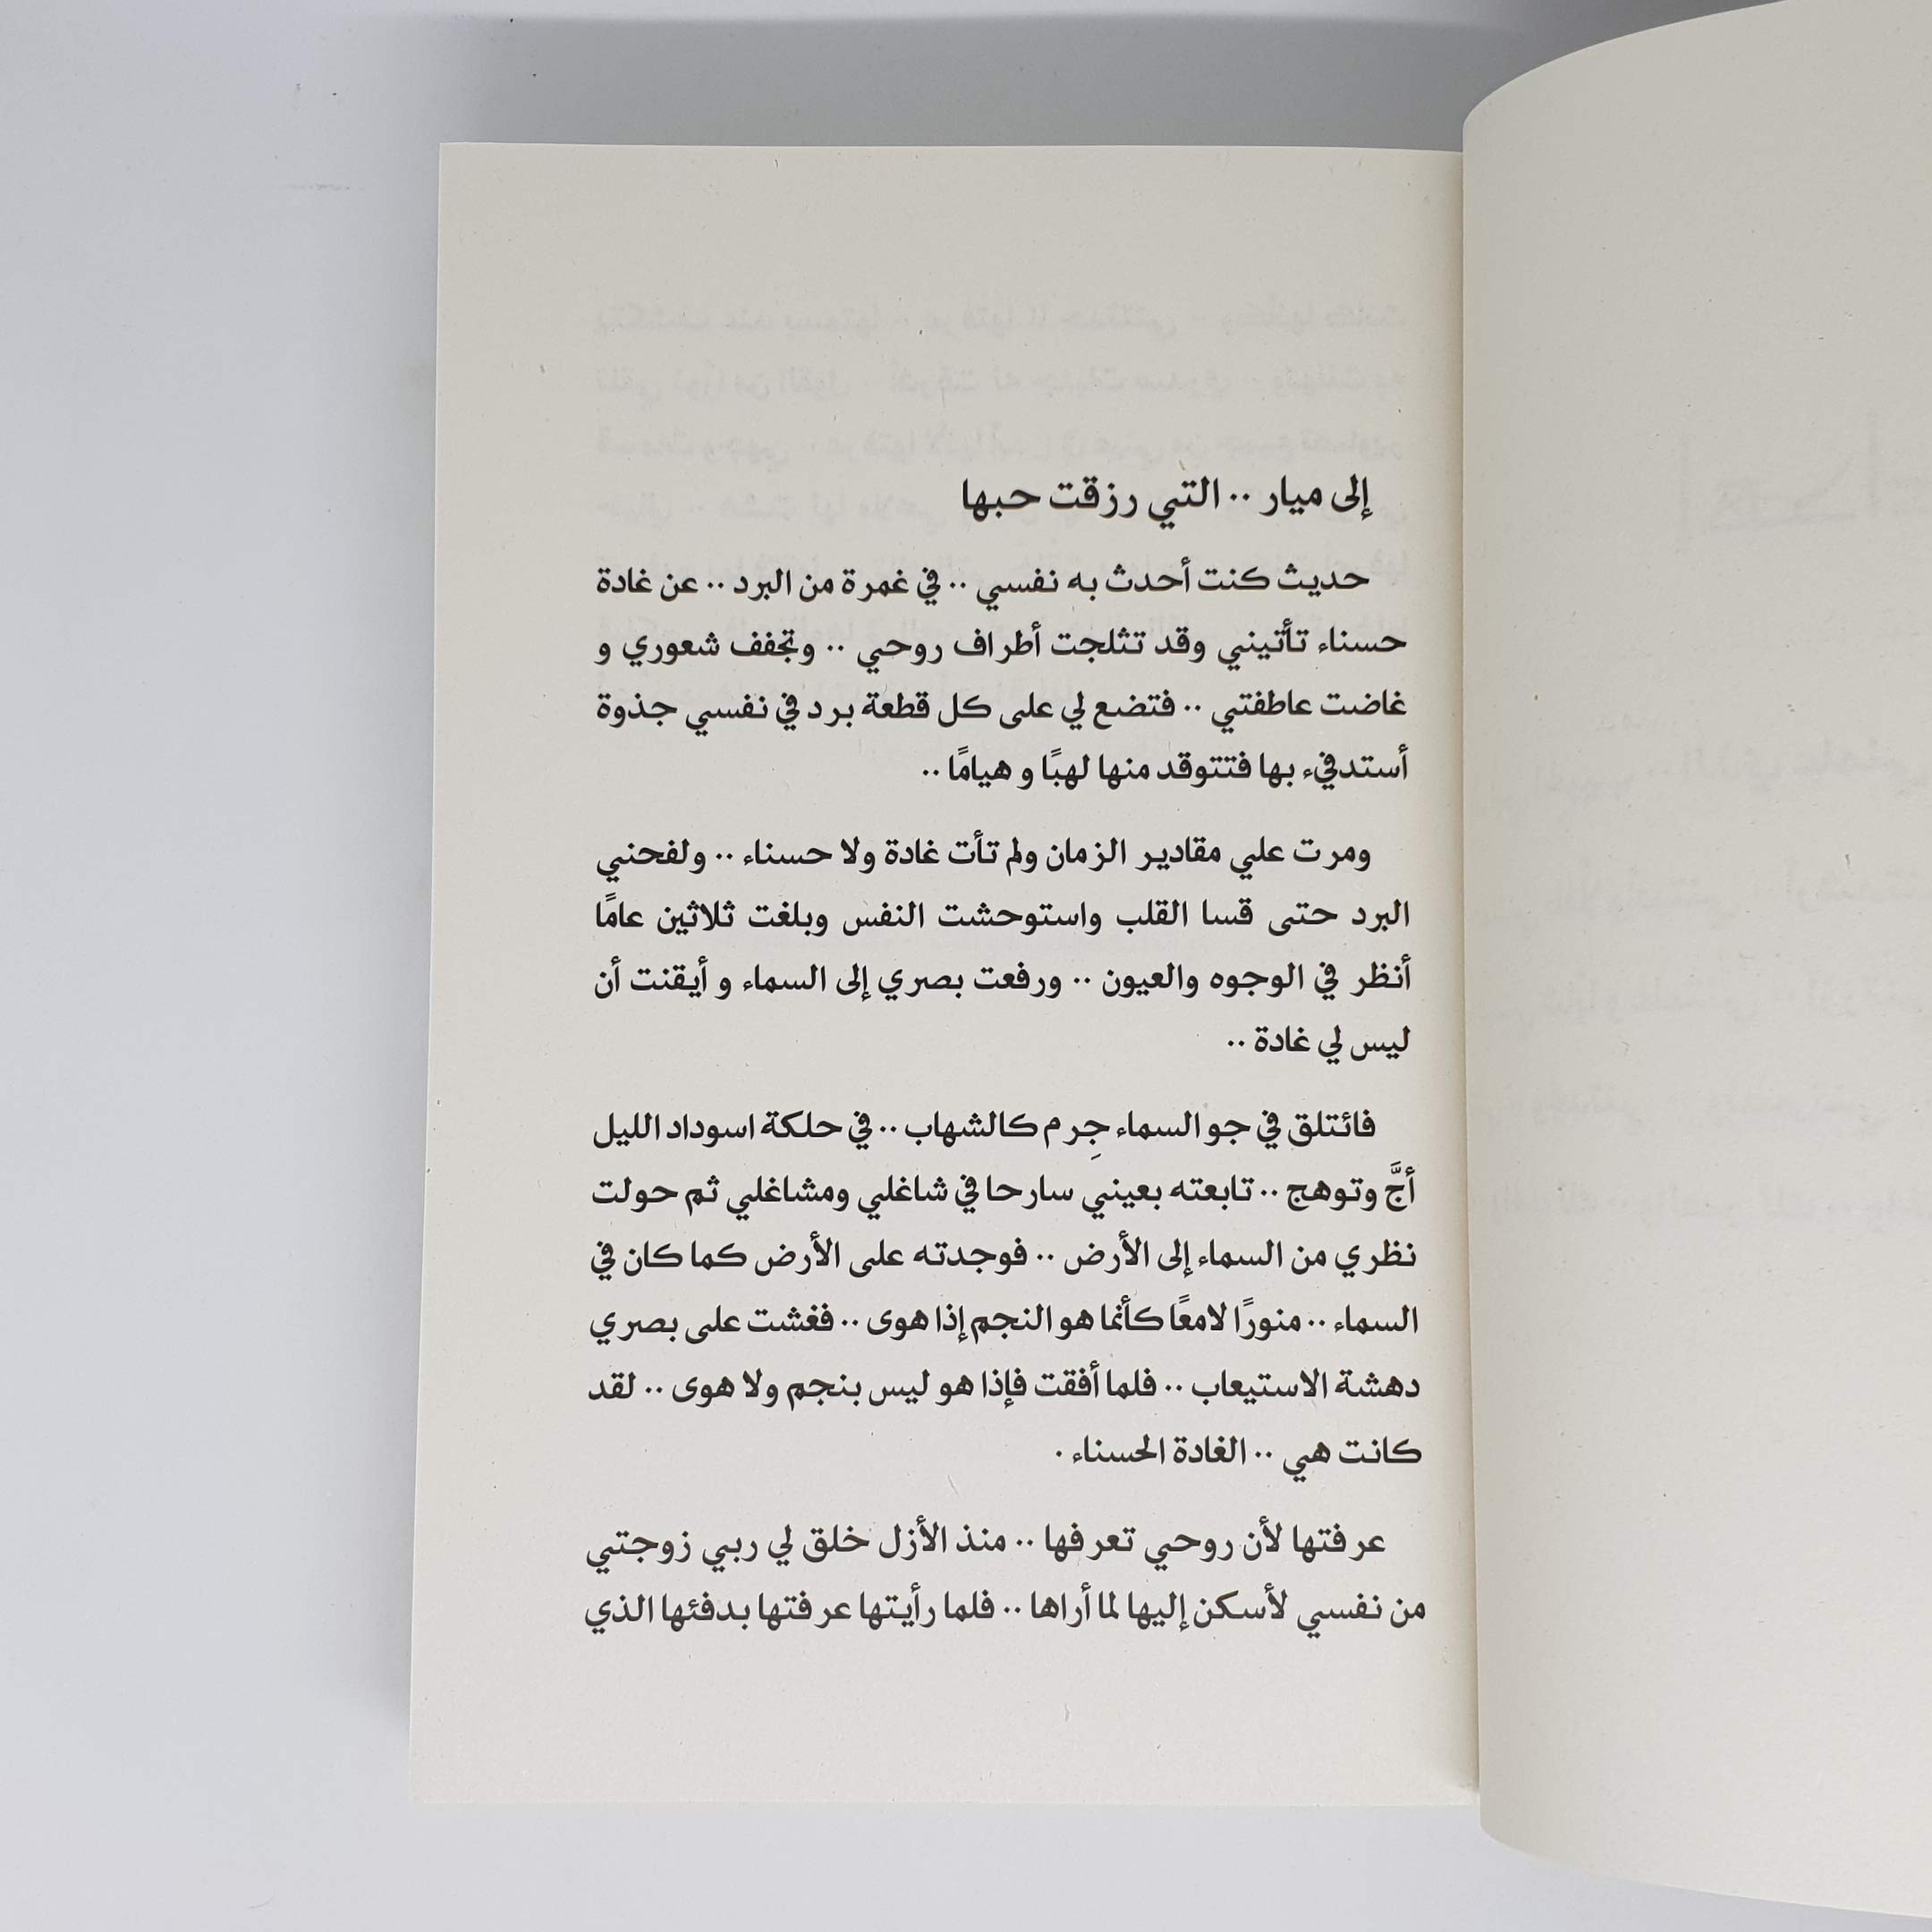 إلى ميار .. التي رزقت حبها
حديث كنت أحدث به نفسي .. في غمرة من البرد .. عن غادة
حسناء تأتيني وقد تثلجت أطراف روحي .. وتجفف شعوري و
غاضت عاطفتي .. فتضع لي على كل قطعة برد في نفسي جذوة
أستدفيء بها فتتوقد منها لهبًا و هيامًا ..
ومرت علي مقادير الزمان ولم تأت غادة ولا حسناء .. ولفحني
البرد حتى قسا القلب واستوحشت النفس وبلغت ثلاثين عامًا
أنظر في الوجوه والعيون .. ورفعت بصري إلى السماء و أيقنت أن
ليس لي غادة ..
فائتلق في جو السماء جِرم كالشهاب .. في حلكة اسوداد الليل
أجَّ وتوهج .. تابعته بعيني سارحا في شاغلي ومشاغلي ثم حولت
نظري من السماء إلى الأرض .. فوجدته على الأرض كما كان في
السماء .. منورًا لامعًا كأنما هو النجم إذا هوى .. فغشت على بصري
دهشة الاستيعاب .. فلما أفقت فإذا هو ليس بنجم ولا هوى .. لقد
كانت هي .. الغادة الحسناء .
عرفتها لأن روحي تعرفها .. منذ الأزل خلق لي ربي زوجتي
من نفسي لأسكن إليها لما أراها .. فلما رأيتها عرفتها بدفئها الذي